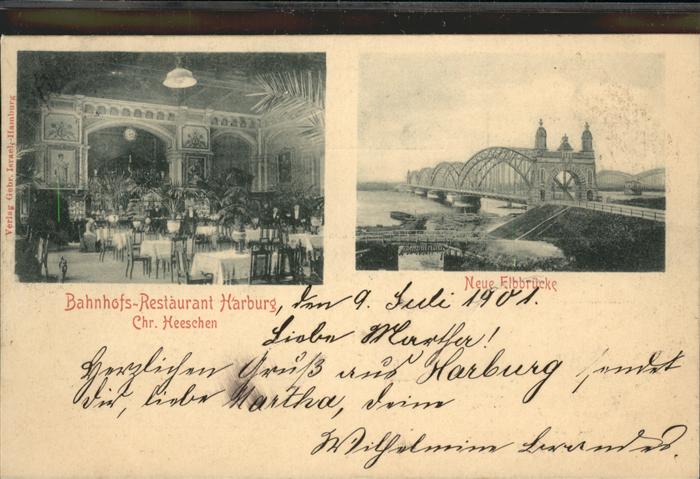 Verlag Gebr. Israel, Hamburg
Neue Elbbrücke
Bahnhofs-Restaurant Harburg, den 9. Juli 1901.
Chr. Heeschen
Liebe Martha!
Herzlichen Gruß aus Harburg sendet
dir, liebe Martha, deine
Wilhelmine Brandes.